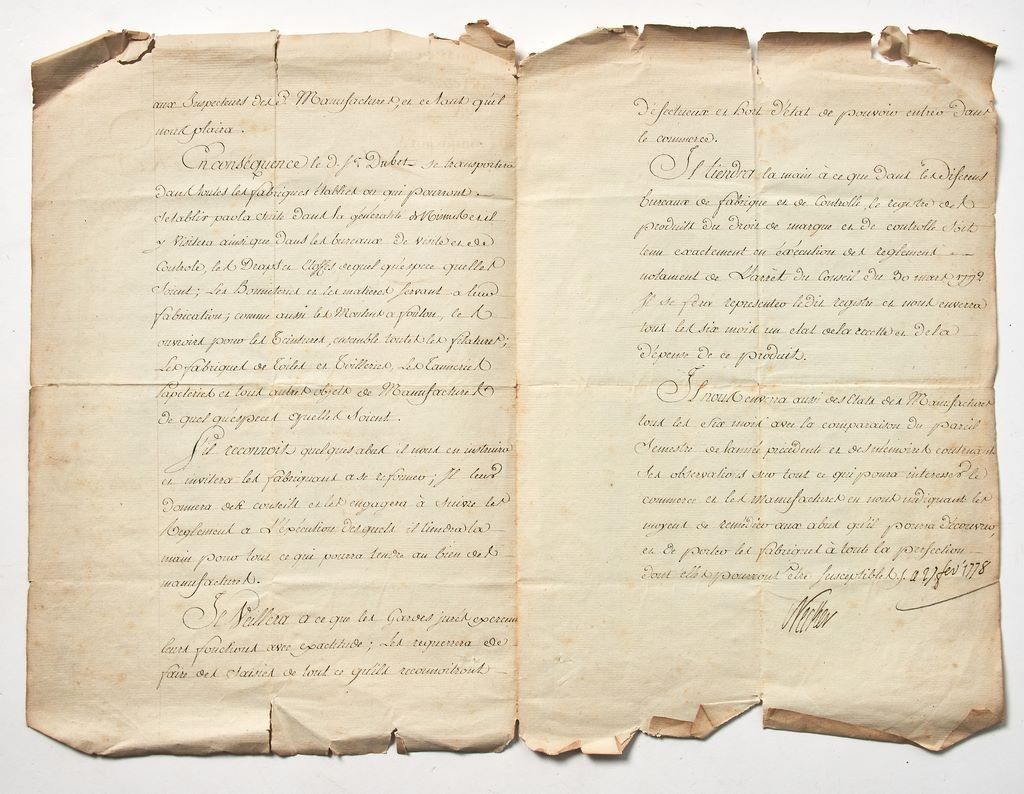 aux Inspecteurs des d. Manufactures, et ce tant qu'il
nous plaira.
En conséquence le d. Sr. Dubet se transportera
dans toutes les fabriques établies ou qui pourront
s'etablir par la suite dans la généralité de et il
y Visitera ainsi que dans les bureaux de visite et de
Controle, les Draps et Etoffes de quelqu'espece qu'elles
soient; Les Bonneteries et les matieres servant a leur
fabrication; comme aussi les Moulins a foulon, les
ouvroirs pour les Teintures, ensemble toutes les filatures;
Les fabriques de Toiles et Toilleries, Les Tanneries
Papeteries et tous autres objets de Manufactures
de quelqu'especes qu'elles soient.
S'il reconnoit quelques abus il nous en instruira
et invitera les fabriquants a se reformer; Il leur
donnera des conseils et les engagera à suivre les
Reglements a L'éxécution desquels il tiendra la
main pour tout ce qui pourra tendre au bien des
manufactures.
Il Veillera a ce que les Gardes jurés exercent
leurs fonctions avec exactitude; Les requerrera de
faire des saisies de tout ce qu'ils reconnoitront
défectueux et hors d'état de pouvoir entrer dans
le commerce.
Il tiendra la main a ce que dans les diferens
bureaux de fabrique et de Controlle, le registre des
produits du droit de marque et de controlle soit
tenu exactement en éxécution des reglements
notament de L'arrêt du Conseil du 30 mars 1772
Il se fera representer ledit registre et nous enverra
tous les six mois un etat de la recette et de la
dépense de ce produit.
Il nous enverra aussi des Etats des Manufactures
tous les six mois avec la comparaison du pareil
Semestre de l'année précédente et des mémoires contenant
ses observations sur tout ce qui poura interesser le
commerce et les manufactures en nous indiquant les
moyens de remédier aux abus qu'il pourra découvrir,
et De porter les fabriques à toute la perfection
dont elles pourront être susceptibles. a 27 fev 1778
Necker